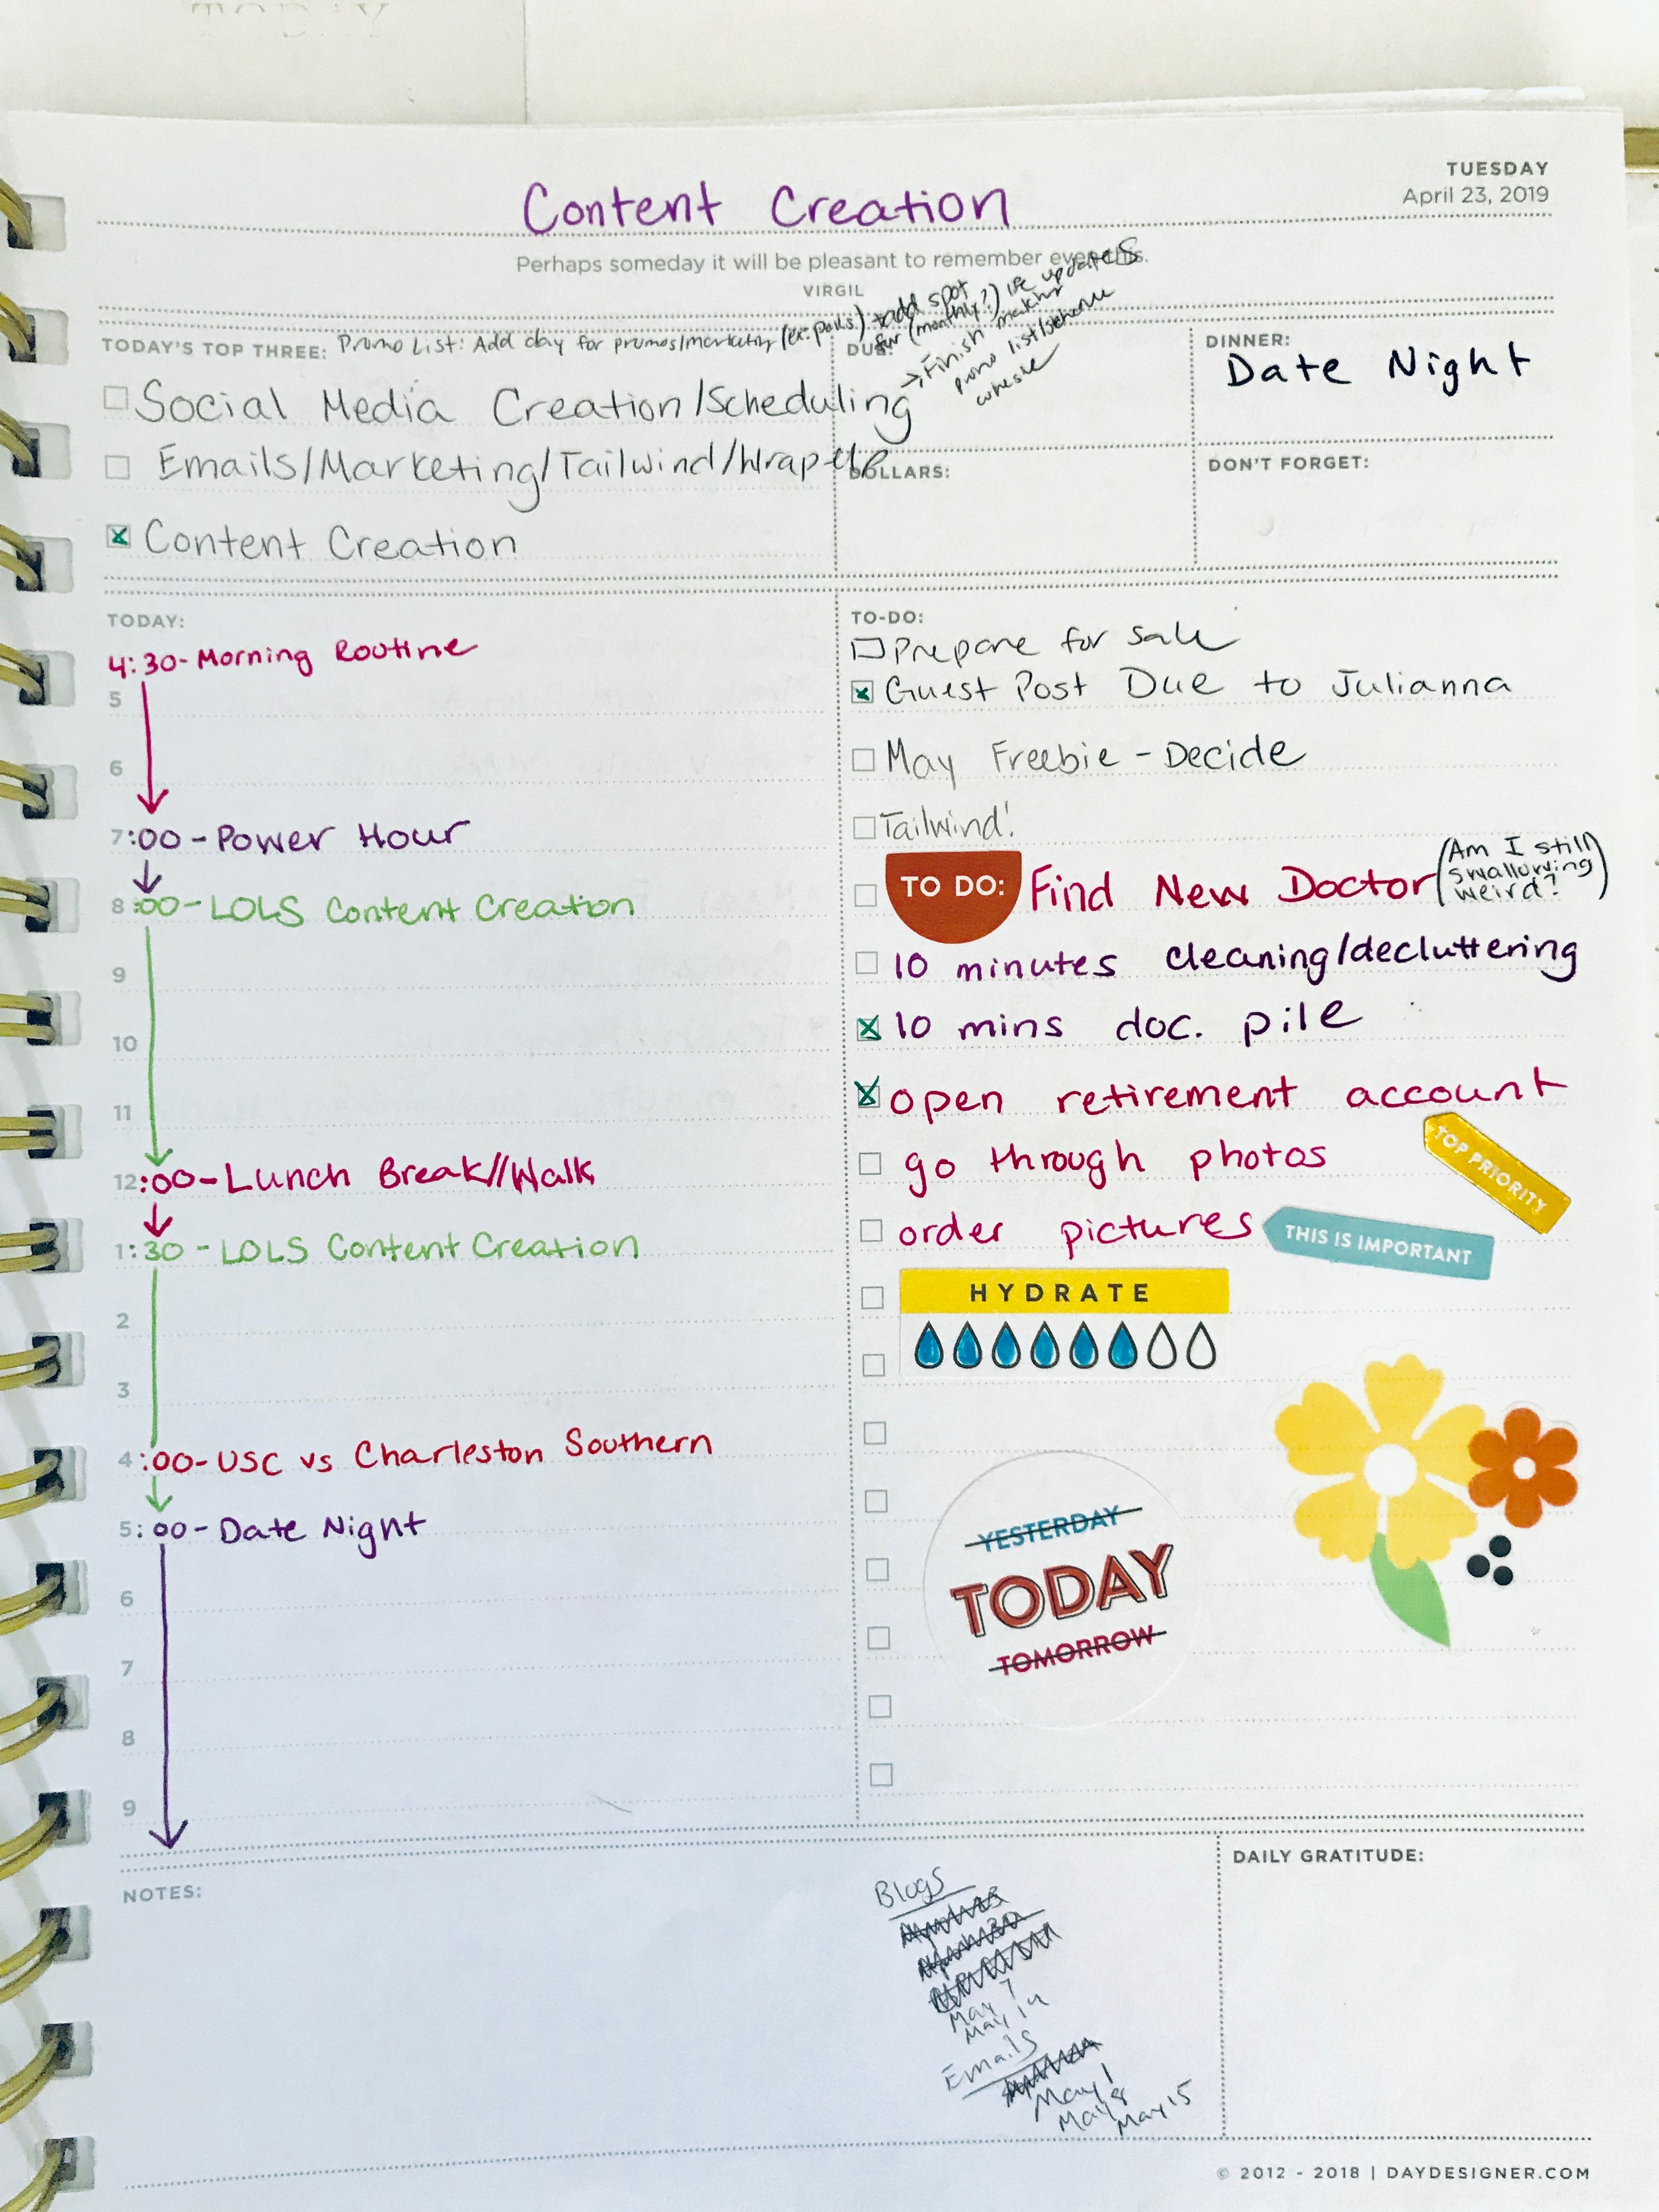 Content Creation
TUESDAY
April 23, 2019
Perhaps someday it will be pleasant to remember even this.
VIRGIL
TODAY'S TOP THREE: Promo List: Add day for promos/marketing (ex: polls) + add spot
for (monthly?) life updates
→ Finish making
promo list/scheme
cohesive
Social Media Creation/Scheduling
Emails/Marketing/Tailwind/Wrap-Up
Content Creation
DUE:
DOLLARS:
DINNER:
Date Night
DON'T FORGET:
TODAY:
4:30-Morning Routine
5
6
7:00-Power Hour
8:00-LOLS Content Creation
9
10
11
12:00-Lunch Break//Walk
1:30-LOLS Content Creation
2
3
4:00-USC vs Charleston Southern
5:00-Date Night
6
7
8
9
TO-DO:
Prepare for Sale
Guest Post Due to Julianna
May Freebie - Decide
Tailwind!
TO DO: Find New Doctor (Am I still
swallowing
weird?)
10 minutes cleaning/decluttering
10 mins doc. pile
open retirement account
go through photos
TOP PRIORITY
order pictures
THIS IS IMPORTANT
HYDRATE
YESTERDAY
TODAY
TOMORROW
NOTES:
Blogs
May 7
May 14
Emails
May 1
May 8
May 15
DAILY GRATITUDE:
© 2012 - 2018 | DAYDESIGNER.COM